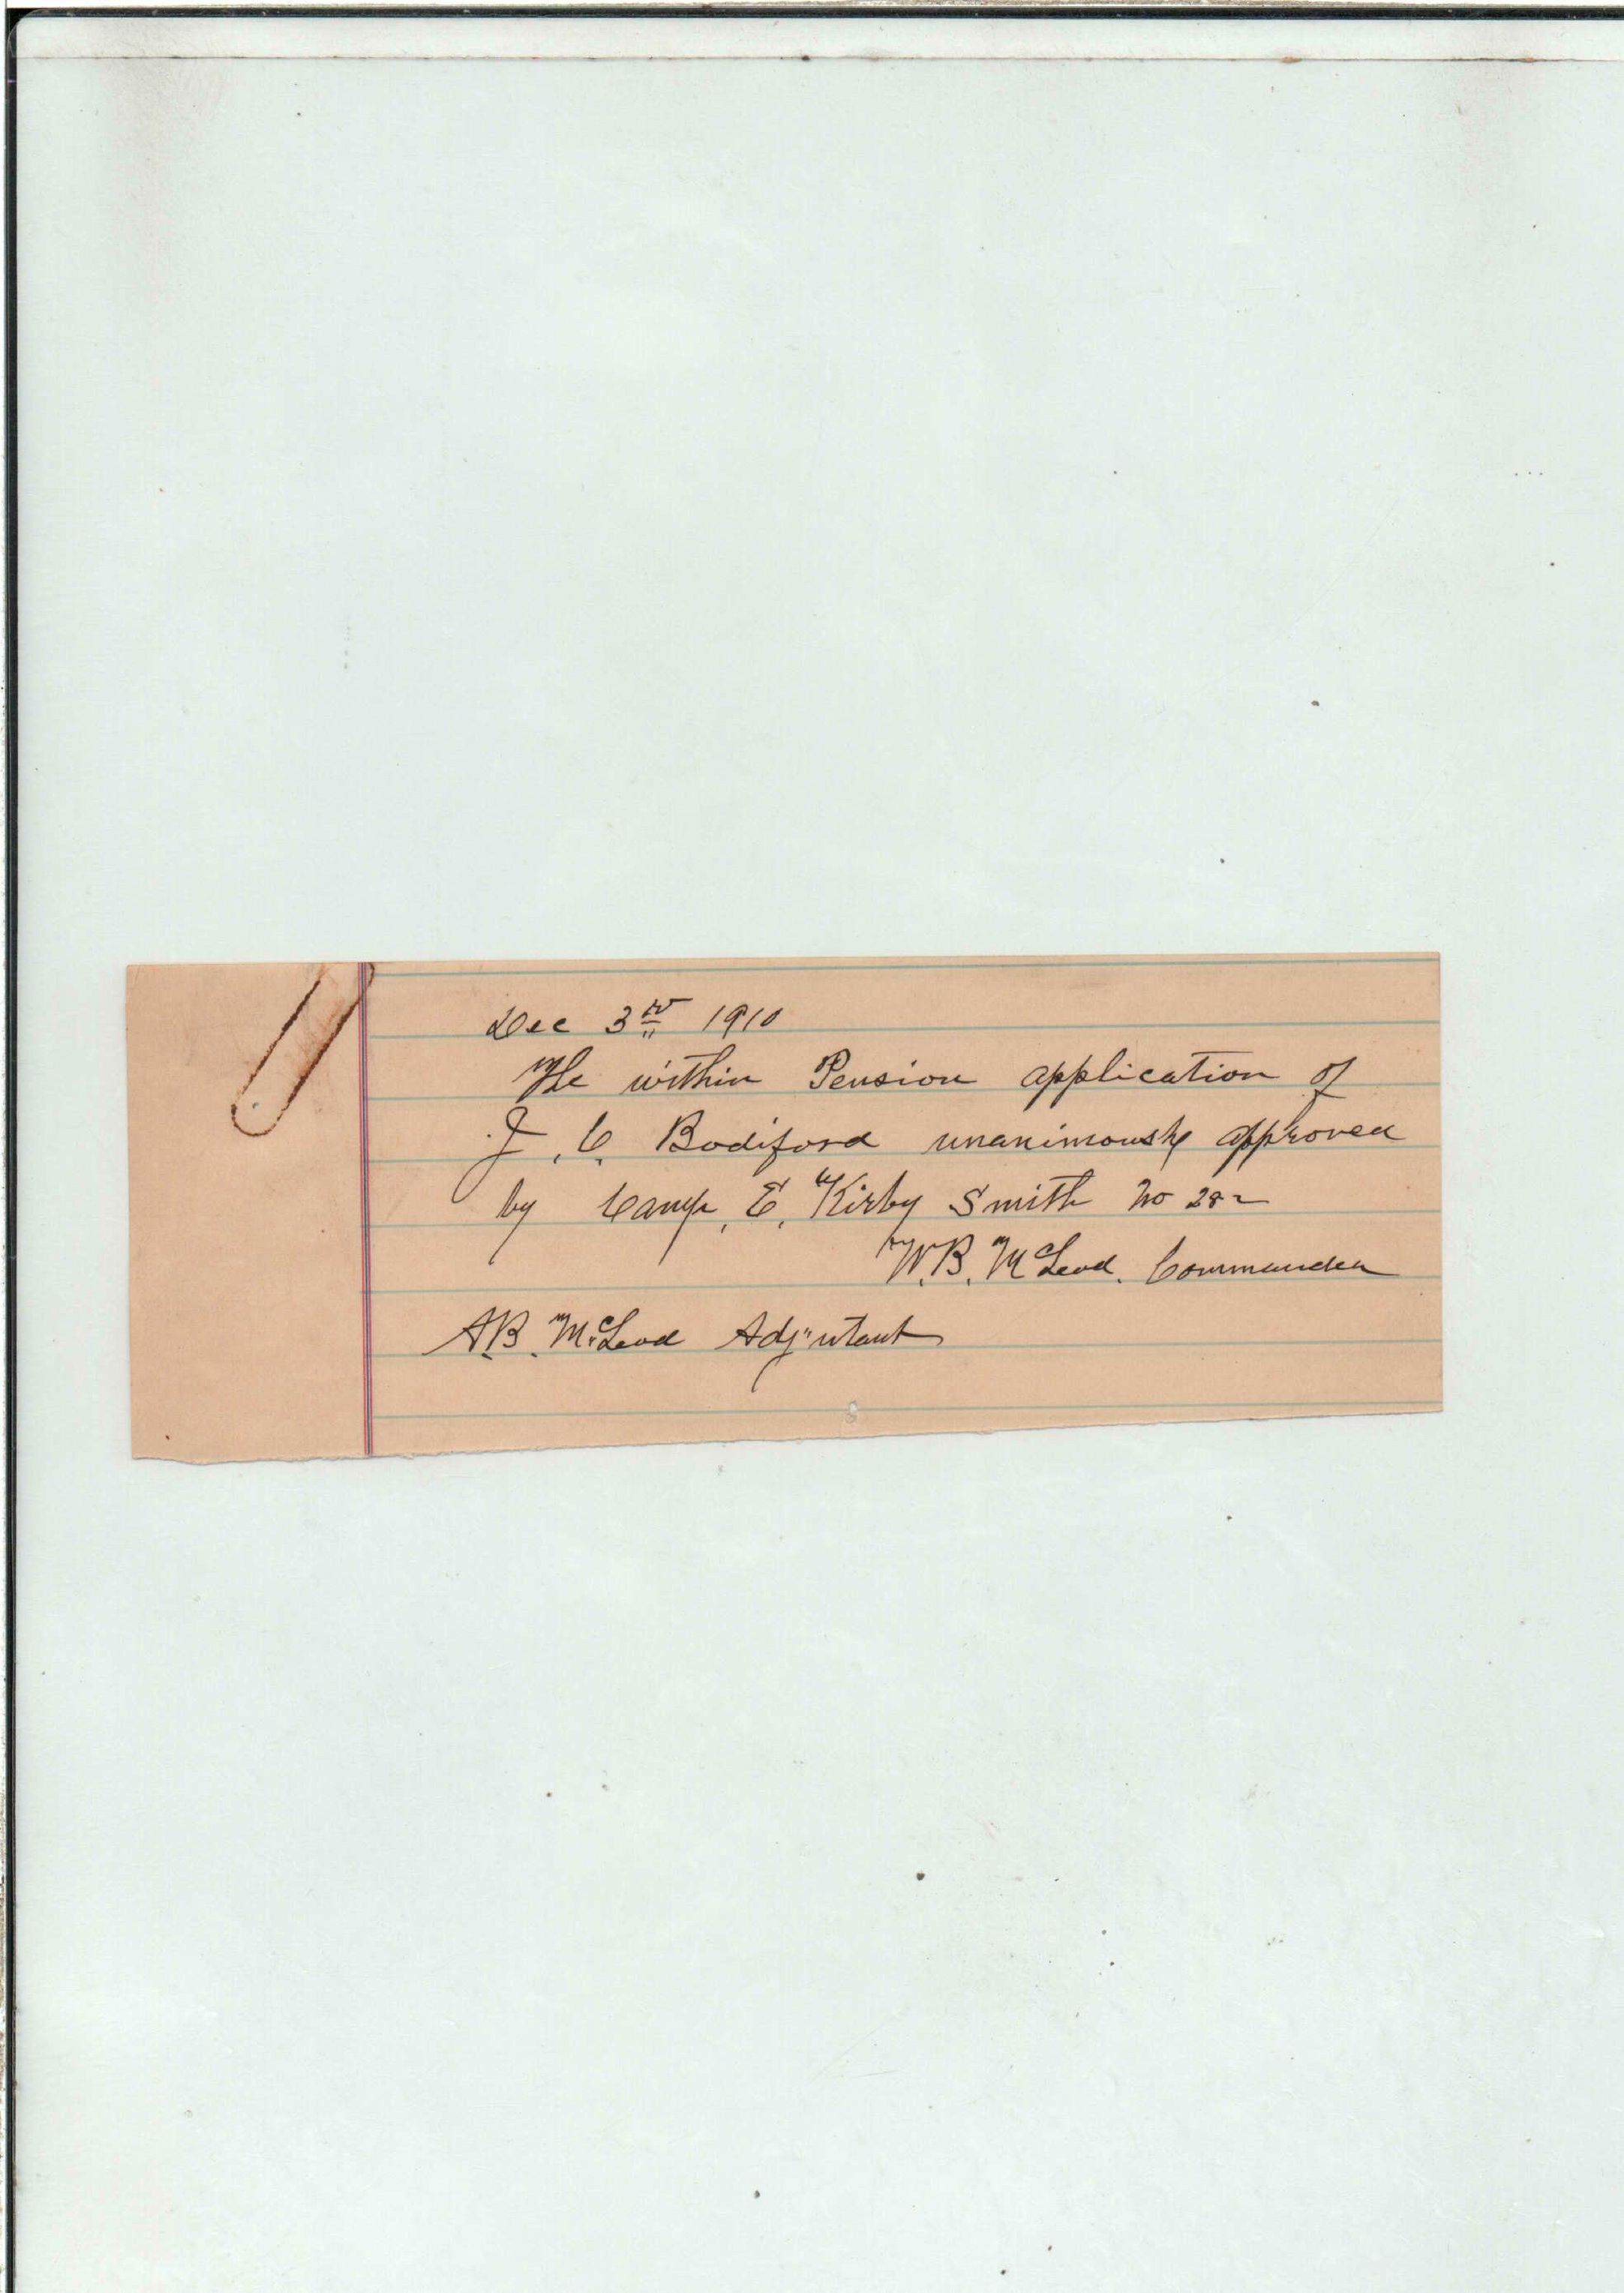 Dec 3rd 1910
The within Pension application of
J. C. Bodiford unanimously approved
by Camp, E, Kirby Smith No 282
W.B. McLeod. Commander
A.B. McLeod Adjutant